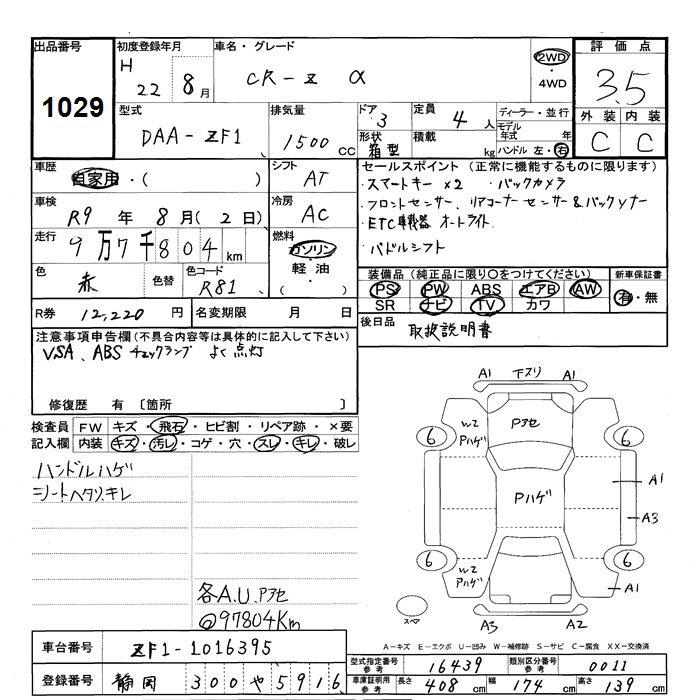 出品番号 初度登録年月 車名・グレード 評価点
1029 H 22 8月 CR-Z α 2WD ・ 4WD 3.5
外装 内装
C C
型式 排気量 ドア 定員 ディーラー・並行
DAA-ZF1 1500 cc 3 4人 モデル年式 年
形状 積載 ハンドル 左・右
箱型 kg
車歴 シフト セールスポイント (正常に機能するものに限ります)
自家用・( ) AT ・スマートキー×2 ・バックカメラ
車検 冷房 ・フロントセンサー、リアコーナーセンサー&バックソナー
R9年 8月(2日) AC ・ETC車載器 オートライト
走行 燃料 ・パドルシフト
9万7千804km ガソリン・軽油・( )
色 色替 色コード 装備品(純正品に限り○をつけてください) 新車保証書
赤 R81 PS PW ABS エアB AW 有・無
SR ナビ TV カワ
R券 12,220円 名変期限 月 日 後日品 取扱説明書
注意事項申告欄(不具合内容等は具体的に記入して下さい)
VSA、ABSチェックランプ よく点灯
修復歴 有 〔箇所 〕
検査員記入欄 FW キズ・飛石・ヒビ割・リペア跡・×要
内装 キズ・汚レ・コゲ・穴・スレ・キレ・破レ
ハンドルハゲ
シートヘタリ、キレ
各A.U.Pアセ
@97804Km
A1 下スリ A1
W2 Pハゲ Pアセ
6 6
Pハゲ A1
A3
6 6
W2 Pハゲ A1
スペア A3 A2
A-キズ E-エクボ U-凹み W-補修跡 S-サビ C-腐食 XX-交換済
車台番号 ZF1-1016395 型式指定番号 参考 16439 類別区分番号 参考 0011
登録番号 静岡 300 や 5916 車庫証明用 参考 長さ 408cm 幅 174cm 高さ 139cm